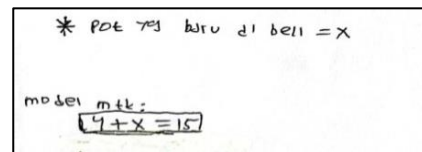 * Pot yg baru di beli = x
model mtk:
4 + x = 15